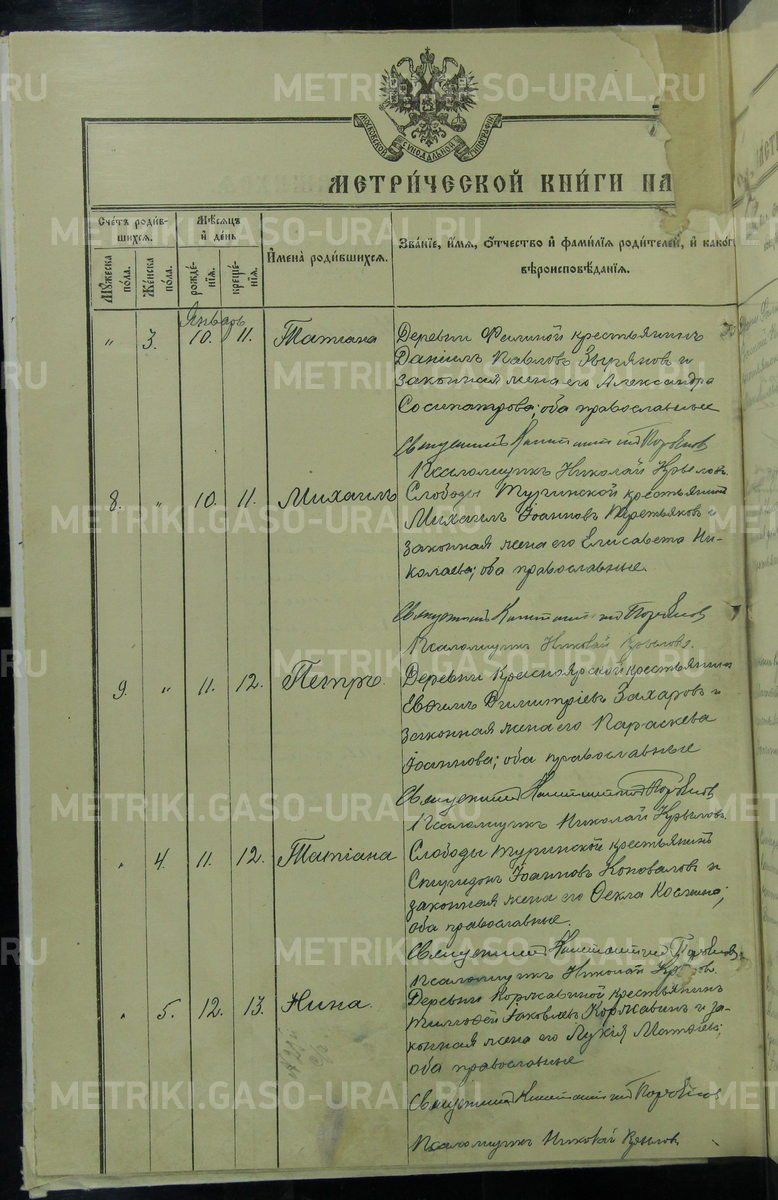 METRIKI.GASO-URAL.RU
МОСКОВСКОЙ СѴНОДАЛЬНОЙ ТИПОГРАФІИ
МЕТРИ́ЧЕСКОЙ КНИ́ГИ НА
Сче́тъ роди́в-
шихся.
Мѣ́сяцъ
и҆ де́нь
И҆мена̀ роди́вшихся.
Зва́нїе, и҆́мя, ѻ҆́тчество и҆ фамі́лїя роди́телей, и҆ како́г
вѣроисповѣ́данїя.
Мꙋ́жеска по́ла.
Же́нска по́ла.
рожде́нїя.
креще́нїя.
Январь
" 3. 10. 11. Татіана
Деревни Фалиной крестьянинъ
Даніилъ Павловъ Зыряновъ и
законная жена его Александра
Сосипатрова; оба православные
Священникъ Константинъ
Псаломщикъ Николай Крыловъ.
8. " 10. 11. Михаилъ
Слободы Туринской крестьянинъ
Михаилъ Іоанновъ Третьяковъ и
законная жена его Елисавета Ни-
колаева; оба православные.
Священникъ Константинъ
Псаломщикъ Николай Крыловъ.
9. " 11. 12. Петръ.
Деревни Красноярской крестьянинъ
Евѳимъ Димитріевъ Захаровъ и
законная жена его Параскева
Іоаннова; оба православные
Священникъ Константинъ
Псаломщикъ Николай Крыловъ.
" 4. 11. 12. Татіана
Слободы Туринской крестьянинъ
Спиридонъ Іоанновъ Коноваловъ и
законная жена его Ѳекла Космина;
оба православные.
Священникъ Константинъ
Псаломщикъ Николай Крыловъ.
" 5. 12. 13. Нина.
Деревни Коржавиной крестьянинъ
Тимоѳей Іаковлевъ Коржавинъ и за-
конная жена его Лукія Матѳіева;
оба православные
Священникъ Константинъ
Псаломщикъ Николай Крыловъ.